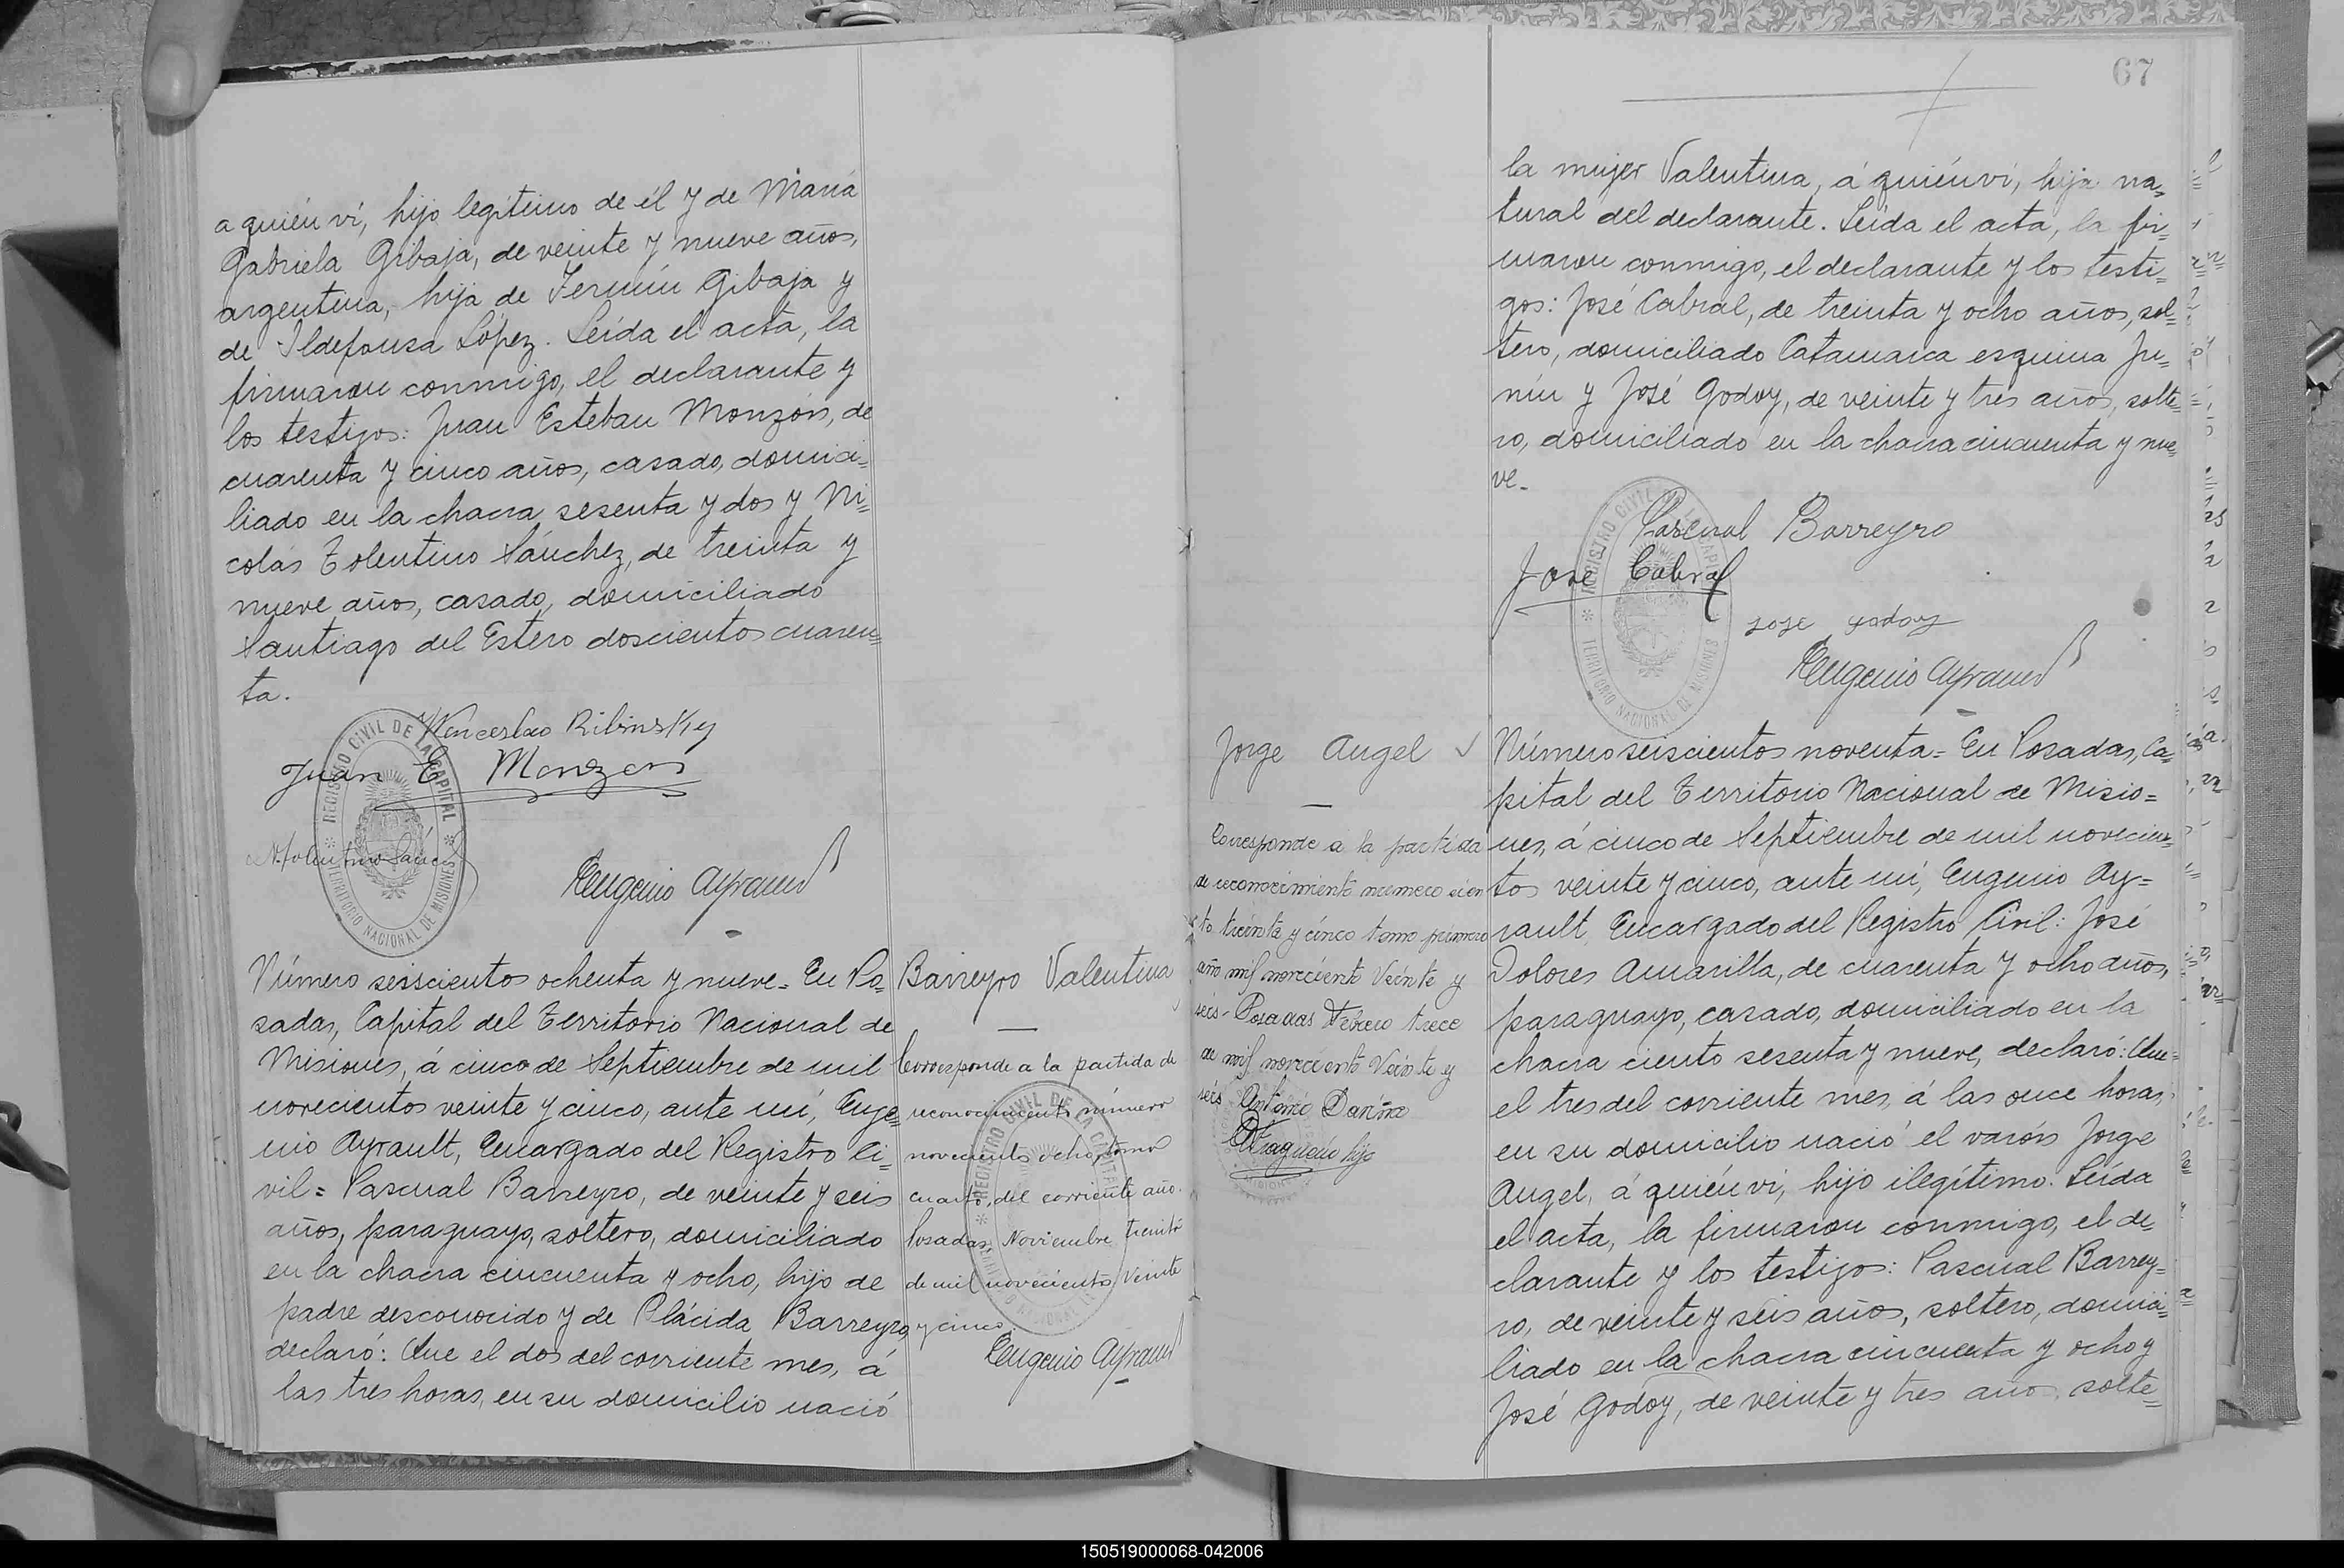 a quién ví, hijo legítimo de él y de María
Gabriela Gibaja, de veinte y nueve años,
argentina, hija de Fermín Gibaja y
de Ildefonsa López. Leída el acta, la
firmaron conmigo, el declarante y
los testigos: Juan Esteban Monzón, de
cuarenta y cinco años, casado, domici=
liado en la chacra sesenta y dos y Ni=
colás Tolentino Sánchez, de treinta y
nueve años, casado, domiciliado
Santiago del Estero doscientos cuaren=
ta.
Wenceslao Ribinsky
Juan E Monzon
N. Tolentino Sánchez
REGISTRO CIVIL DE LA CAPITAL
TERRITORIO NACIONAL DE MISIONES
Eugenio Ayrault
Número seiscientos ochenta y nueve = En Po=
sadas, Capital del Territorio Nacional de
Misiones, á cinco de Septiembre de mil
novecientos veinte y cinco, ante mí, Euge=
nio Ayrault, Encargado del Registro Ci=
vil = Pascual Barreyro, de veinte y seis
años, paraguayo, soltero, domiciliado
en la chacra cincuenta y ocho, hijo de
padre desconocido y de Plácida Barreyro,
declaró: Que el dos del corriente mes, á
las tres horas, en su domicilio nació
Barreyro Valentina
Corresponde a la partida de
reconocimiento número
novecientos ocho, tomo
cuarto, del corriente año.
Posadas, Noviembre treinta
de mil novecientos veinte
y cinco.
REGISTRO CIVIL DE LA CAPITAL
Eugenio Ayrault
67
la mujer Valentina, á quién ví, hija na=
tural del declarante. Leída el acta, la fir=
maron conmigo, el declarante y los testi=
gos: José Cabral, de treinta y ocho años, sol=
tero, domiciliado Catamarca esquina Ju=
nín y José Godoy, de veinte y tres años, solte=
ro, domiciliado en la chacra cincuenta y nue=
ve.
Pascual Barreyro
Jose Cabral
jose godoy
REGISTRO CIVIL DE LA CAPITAL
TERRITORIO NACIONAL DE MISIONES
Eugenio Ayrault
Jorge Angel
Corresponde a la partida
de reconocimiento numero cien
to treinta y cinco tomo primero
año mil noveciento veinte y
seis - Posadas Febrero trece
de mil noveciento veinte y
seis Antonio
hijo
Número seiscientos noventa = En Posadas, Ca=
pital del Territorio Nacional de Misio=
nes, á cinco de Septiembre de mil novecien=
tos veinte y cinco, ante mí, Eugenio Ay=
rault, Encargado del Registro Civil: José
Dolores Amarilla, de cuarenta y ocho años,
paraguayo, casado, domiciliado en la
chacra ciento sesenta y nueve, declaró: Que
el tres del corriente mes, á las once horas,
en su domicilio nació el varón Jorge
Angel, á quién ví, hijo ilegítimo. Leída
el acta, la firmaron conmigo, el de=
clarante y los testigos: Pascual Barrey=
ro, de veinte y seis años, soltero, domici=
liado en la chacra cincuenta y ocho y
José Godoy, de veinte y tres años, solte=
150519000068-042006